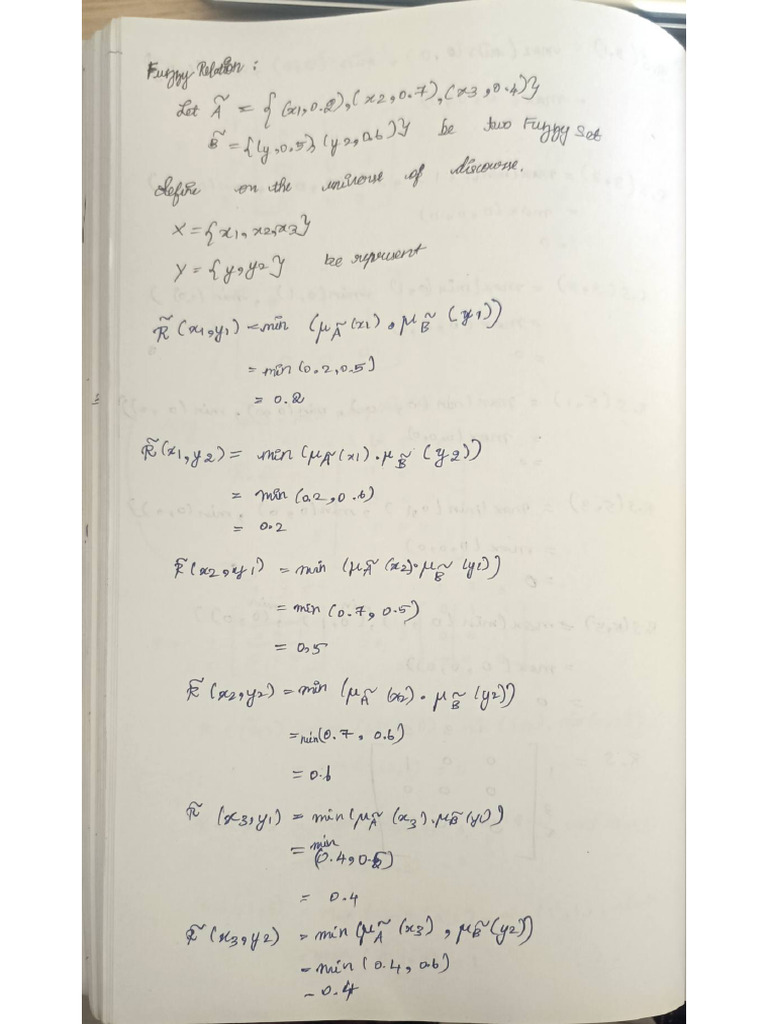 Fuzzy Relation :
Let Ã = {(x1,0.2),(x2,0.7),(x3,0.4)}
B̃ = {(y,0.5),(y2,0.6)} be two Fuzzy Set
define on the universe of discourse.
X = {x1,x2,x3}
Y = {y,y2} be represent
R̃ (x1,y1) = min (μÃ(x1) . μB̃ (y1))
= min(0.2,0.5)
= 0.2
R̃(x1,y2) = min (μÃ(x1) . μB̃ (y2))
= min (0.2,0.6)
= 0.2
R̃(x2,y1) = min (μÃ (x2) . μB̃ (y1))
= min (0.7, 0.5)
= 0.5
R̃ (x2,y2) = min (μÃ (x2) . μB̃ (y2))
= min(0.7, 0.6)
= 0.6
R̃ (x3,y1) = min(μÃ (x3) . μB̃(y1))
= min (0.4,0.5)
= 0.4
R̃ (x3,y2) = min (μÃ (x3) , μB̃(y2))
= min (0.4, 0.6)
= 0.4